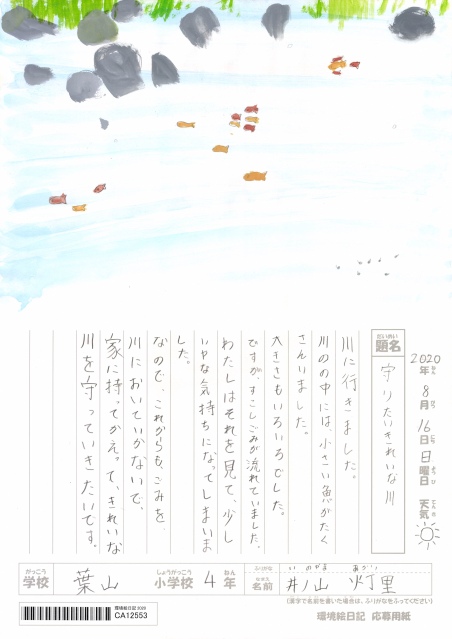 2020年8月16日日曜日 天気
ねん がつ にち ようび てんき
だいめい
題名 守りたいきれいな川
川に行きました。
川のの中には、小さい魚がたく
さんいました。
大きさもいろいろでした。
ですが、すこしごみが流れていました。
わたしはそれを見て、少し
いやな気持ちになってしまいま
した。
なので、これからも、ごみを
川においていかないで、
家に持ってかえって、きれいな
川を守っていきたいです。
がっこう しょうがっこう ねん
学校 葉山 小学校 4年
ふりがな いのやま あかり
なまえ
名前 井ノ山 灯里
(漢字で名前を書いた場合は、ふりがなをふってください)
環境絵日記2020
CA12553
環境絵日記 応募用紙